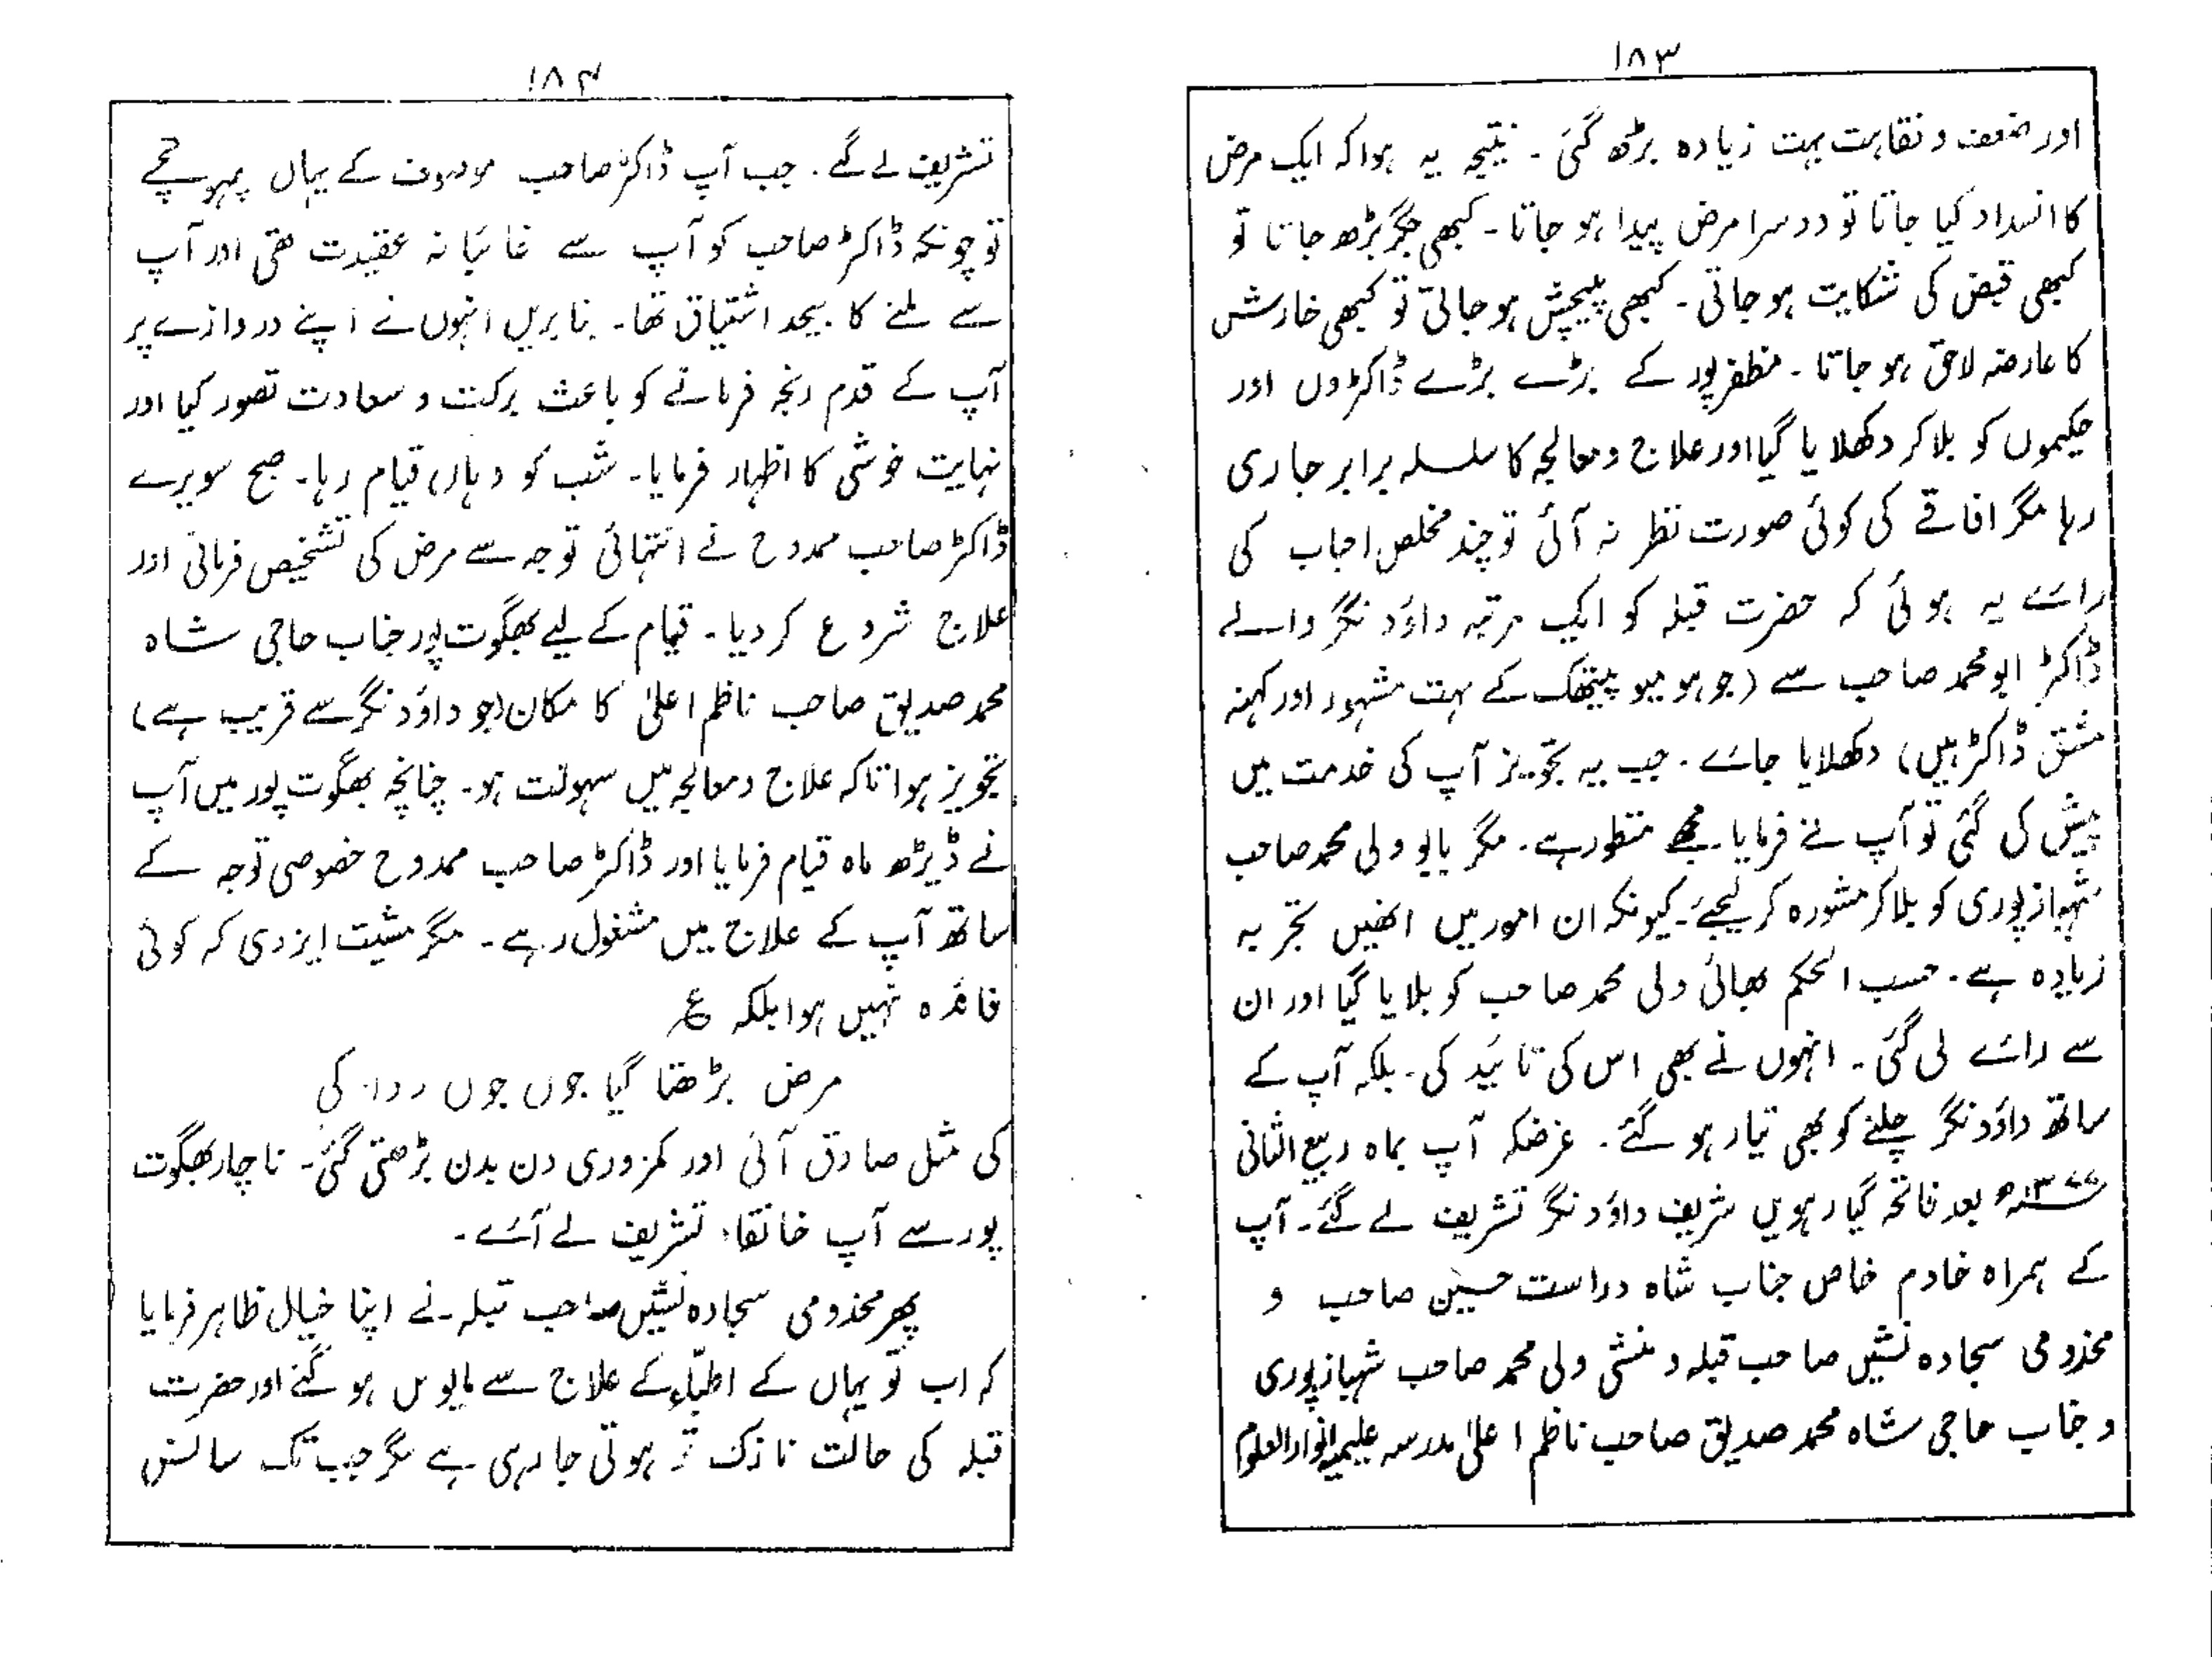 ۱۸۳
اور ضعف و نقاہت بہت زیادہ بڑھ گئی ۔ نتیجہ یہ ہوا کہ ایک مرض
کا انسداد کیا جاتا تو دوسرا مرض پیدا ہو جاتا ۔ کبھی جگر بڑھ جاتا تو
کبھی قبض کی شکایت ہو جاتی ۔ کبھی پیچش ہو جاتی تو کبھی خارش
کا عارضہ لاحق ہو جاتا ۔ مظفر پور کے بڑے بڑے ڈاکٹروں اور
حکیموں کو بلا کر دکھلایا گیا اور علاج و معالجہ کا سلسلہ برابر جاری
رہا مگر افاقے کی کوئی صورت نظر نہ آئی تو چند مخلص احباب کی
رائے یہ ہوئی کہ حضرت قبلہ کو ایک مرتبہ داؤد نگر والے
ڈاکٹر ابو محمد صاحب سے (جو ہومیو پیتھک کے بہت مشہور اور کہنہ
مشق ڈاکٹر ہیں) دکھلایا جائے ۔ جب یہ تجویز آپ کی خدمت میں
پیش کی گئی تو آپ نے فرمایا ۔ مجھے منظور ہے ۔ مگر بابو ولی محمد صاحب
شہبازپوری کو بلا کر مشورہ کر لیجئے ۔ کیونکہ ان امور میں انھیں تجربہ
زیادہ ہے ۔ حسب الحکم بھائی ولی محمد صاحب کو بلایا گیا اور ان
سے رائے لی گئی ۔ انہوں نے بھی اس کی تائید کی ۔ بلکہ آپ کے
ساتھ داؤد نگر چلنے کو بھی تیار ہو گئے ۔ غرضکہ آپ بماہ ربیع الثانی
۱۳۷۷ھ بعد فاتحہ گیارہویں شریف داؤد نگر تشریف لے گئے ۔ آپ
کے ہمراہ خادم خاص جناب شاہ دراست حسین صاحب و
مخدومی سجادہ نشیں صاحب قبلہ و منشی ولی محمد صاحب شہبازپوری
و جناب حاجی شاہ محمد صدیق صاحب ناظم اعلیٰ مدرسہ علیمیہ انوار العلوم
۱۸۴
تشریف لے گے ۔ جب آپ ڈاکٹر صاحب موصوف کے یہاں پہونچے
تو چونکہ ڈاکٹر صاحب کو آپ سے غائبانہ عقیدت تھی اور آپ
سے ملنے کا بیحد اشتیاق تھا ۔ بنا بریں انہوں نے اپنے دروازے پر
آپ کے قدم رنجہ فرمانے کو باعث برکت و سعادت تصور کیا اور
نہایت خوشی کا اظہار فرمایا ۔ شب کو وہاں قیام رہا ۔ صبح سویرے
ڈاکٹر صاحب ممدوح نے انتہائی توجہ سے مرض کی تشخیص فرمائی اور
علاج شروع کر دیا ۔ قیام کے لیے بھگوت پور جناب حاجی شاہ
محمد صدیق صاحب ناظم اعلیٰ کا مکان (جو داؤد نگر سے قریب ہے)
تجویز ہوا تاکہ علاج و معالجہ میں سہولت ہو ۔ چنانچہ بھگوت پور میں آپ
نے ڈیڑھ ماہ قیام فرمایا اور ڈاکٹر صاحب ممدوح خصوصی توجہ کے
ساتھ آپ کے علاج میں مشغول رہے ۔ مگر مشیت ایزدی کہ کوئی
فائدہ نہیں ہوا بلکہ ع
مرض بڑھتا گیا جوں جوں دوا کی
کی مثل صادق آئی اور کمزوری دن بدن بڑھتی گئی ۔ ناچار بھگوت
پور سے آپ خانقاہ تشریف لے آئے ۔
پھر مخدومی سجادہ نشیں صاحب قبلہ نے اپنا خیال ظاہر فرمایا
کہ اب تو یہاں کے اطباء کے علاج سے مایوس ہو گئے اور حضرت
قبلہ کی حالت نازک تر ہوتی جا رہی ہے مگر جب تک سانس